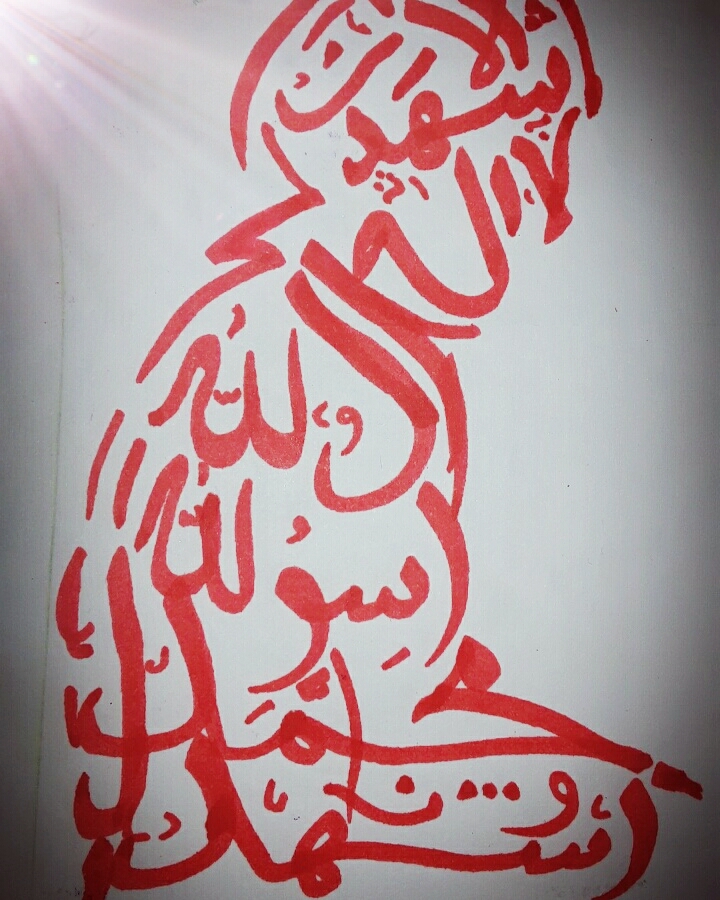 اشهد ان لا
اله
الا الله
و
اشهد ان
محمد
رسول الله